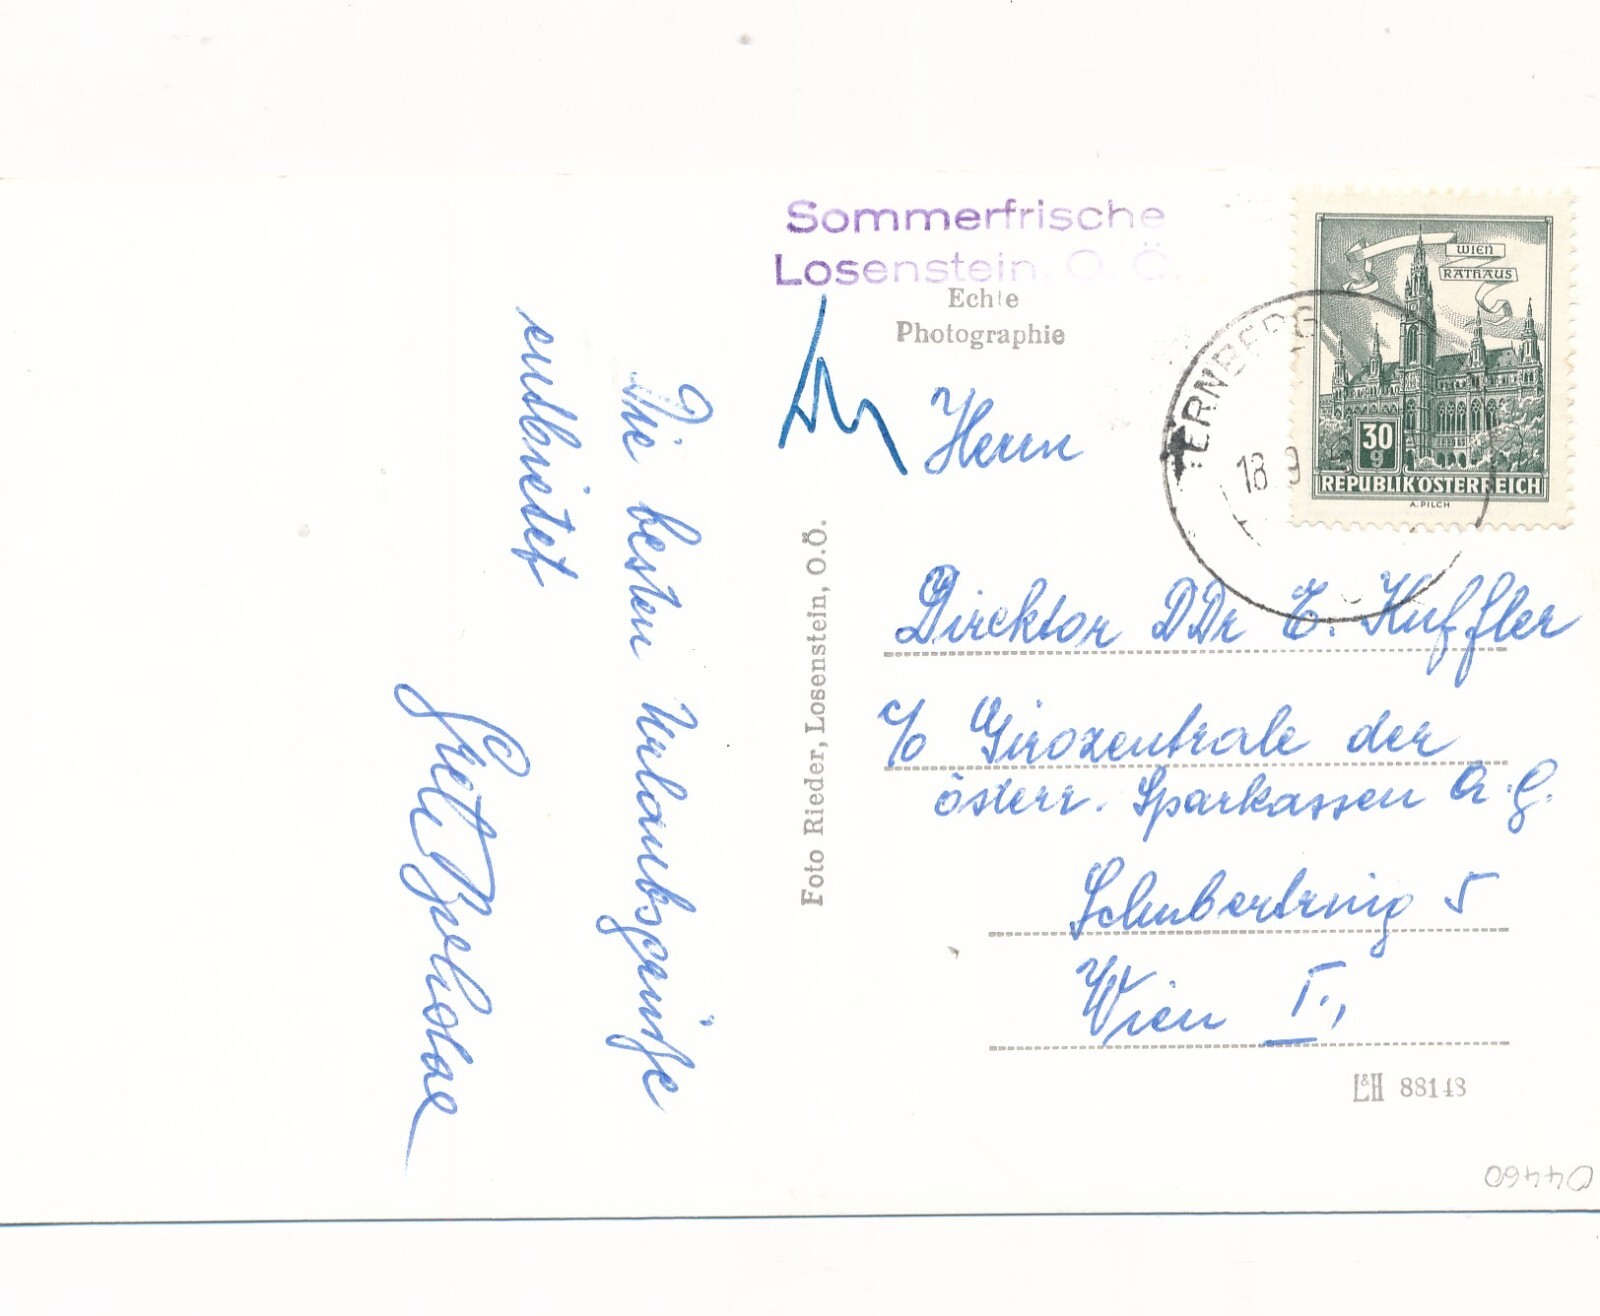 Sommerfrische
Losenstein, O. Ö.
Echte
Photographie
WIEN
RATHAUS
30
g
REPUBLIK ÖSTERREICH
A. PILCH
ERNBERG
18 9
Die besten Urlaubsgrüße
entbietet
Foto Rieder, Losenstein, O.Ö.
Herrn
Direktor DDr E. Kuffler
c/o Girozentrale der
österr. Sparkassen A.G.
Schubertring 5
Wien I.,
L&H 88148
04460